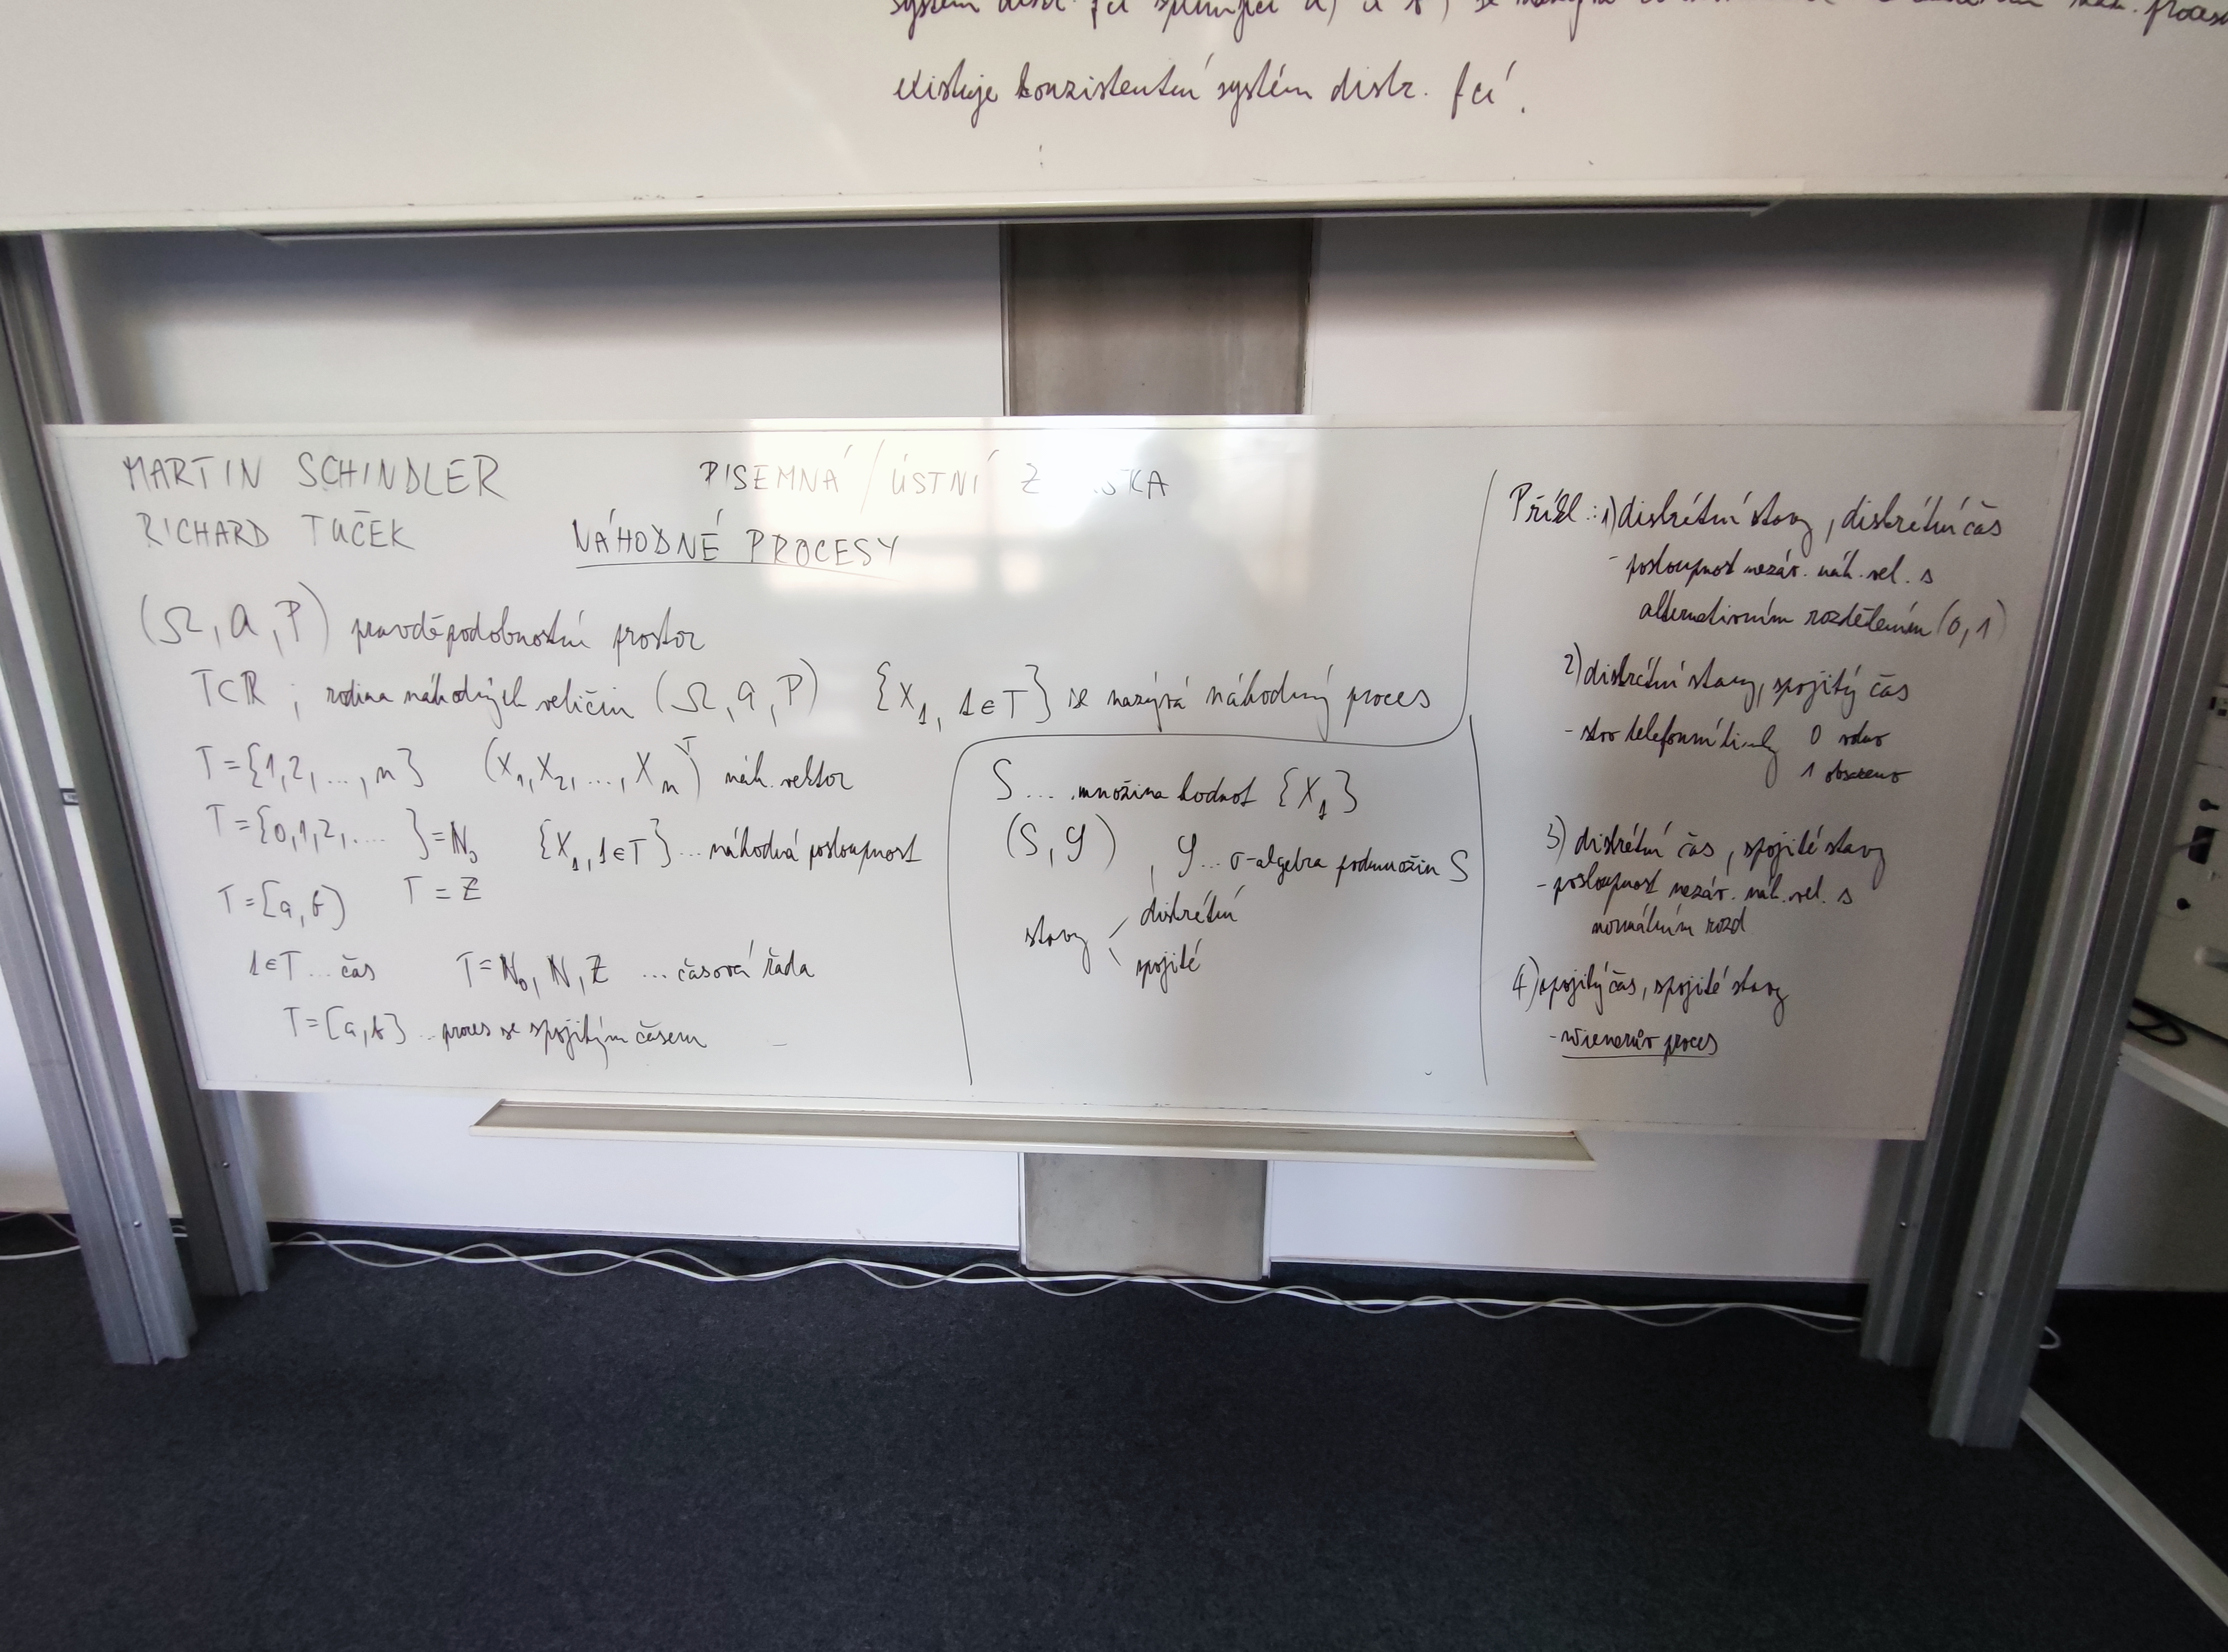 systém distr. fcí splňující a) a b) se nazývá
existuje konzistentní systém distr. fcí.
MARTIN SCHINDLER
RICHARD TUČEK
PISEMNÁ / ÚSTNÍ
NÁHODNÉ PROCESY
(Ω, a, P) pravděpodobnostní prostor
T⊂R ; rodina náhodných veličin (Ω, a, P) {X_t, t∈T} se nazývá náhodný proces
T={1,2,...,n} (X_1, X_2, ..., X_n)^T náh. vektor
T={0,1,2,....}=N_0 {X_t, t∈T}... náhodná posloupnost
T=[a,b) T=Z
t∈T... čas T=N_0, N, Z ...časová řada
T=[a,b] ..proces se spojitým časem
S ... množina hodnot {X_t}
(S,𝒮) , 𝒮... σ-algebra podmnožin S
stavy
diskrétní
spojité
Příkl.: 1) diskrétní stavy, diskrétní čas
- posloupnost nezáv. náh. vel. s
alternativním rozdělením (0,1)
2) diskrétní stavy, spojitý čas
- stav telefonní linky 0 volno
1 obsazeno
3) diskrétní čas, spojité stavy
- posloupnost nezáv. náh. vel. s
normálním rozd
4) spojitý čas, spojité stavy
- wienerův proces